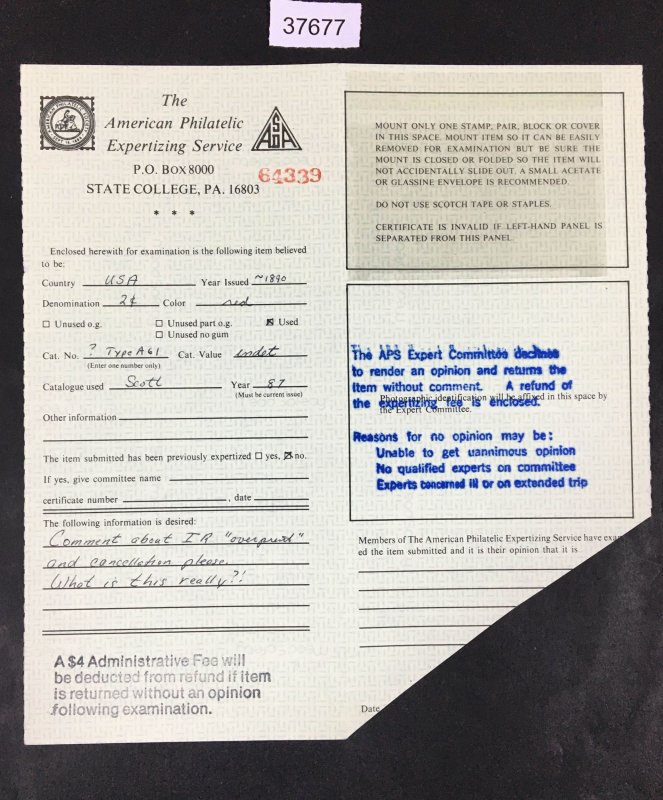 37677
The
American Philatelic
Expertizing Service
P.O. BOX 8000
STATE COLLEGE, PA. 16803
64339
* * *
Enclosed herewith for examination is the following item believed
to be:
Country USA Year Issued ~1890
Denomination 2¢ Color red
Unused o.g. Unused part o.g. Used
Unused no gum
Cat. No. ? Type A61 Cat. Value indet
(Enter one number only)
Catalogue used Scott Year 87
(Must be current issue)
Other information
The item submitted has been previously expertized yes, no.
If yes, give committee name
certificate number , date
The following information is desired:
Comment about IR "overprint"
and cancellation please.
What is this really?!
A $4 Administrative Fee will
be deducted from refund if item
is returned without an opinion
following examination.
MOUNT ONLY ONE STAMP, PAIR, BLOCK OR COVER
IN THIS SPACE. MOUNT ITEM SO IT CAN BE EASILY
REMOVED FOR EXAMINATION BUT BE SURE THE
MOUNT IS CLOSED OR FOLDED SO THE ITEM WILL
NOT ACCIDENTALLY SLIDE OUT. A SMALL ACETATE
OR GLASSINE ENVELOPE IS RECOMMENDED.
DO NOT USE SCOTCH TAPE OR STAPLES.
CERTIFICATE IS INVALID IF LEFT-HAND PANEL IS
SEPARATED FROM THIS PANEL.
The APS Expert Committee declines
to render an opinion and returns the
item without comment. A refund of
Photographic identification will be affixed in this space by
the expertizing fee is enclosed.
the Expert Committee.
Reasons for no opinion may be:
Unable to get uannimous opinion
No qualified experts on committee
Experts concerned ill or on extended trip
Members of The American Philatelic Expertizing Service have exam
ed the item submitted and it is their opinion that it is
Date